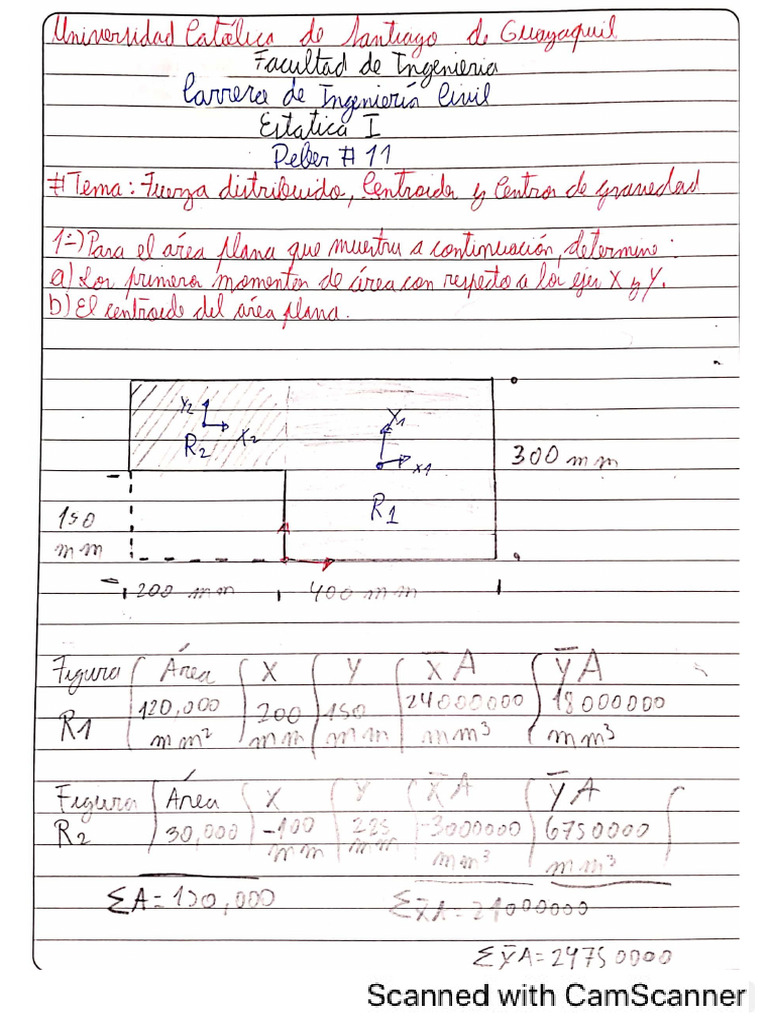 Universidad Católica de Santiago de Guayaquil
Facultad de Ingenieria
Carrera de Ingeniería Civil
Estatica I
Deber # 11
# Tema: Fuerza distribuida, Centroides y Centros de gravedad
1-) Para el área plana que muestra a continuación, determine:
a) Los primeros momentos de área con respecto a los ejes X y Y.
b) El centroide del área plana.
Y2
X2
R2
Y1
X1
R1
300 mm
150
mm
200 mm
400 mm
Figura Área X Y X̅A Y̅A
R1 120,000 mm² 200 mm 150 mm 24000000 mm³ 18000000 mm³
Figura Área X Y X̅A Y̅A
R2 30,000 -100 mm 225 mm -3000000 mm³ 6750000 mm³
ΣA = 150,000
Σx̅A = 21000000
Σy̅A = 24750000
Scanned with CamScanner